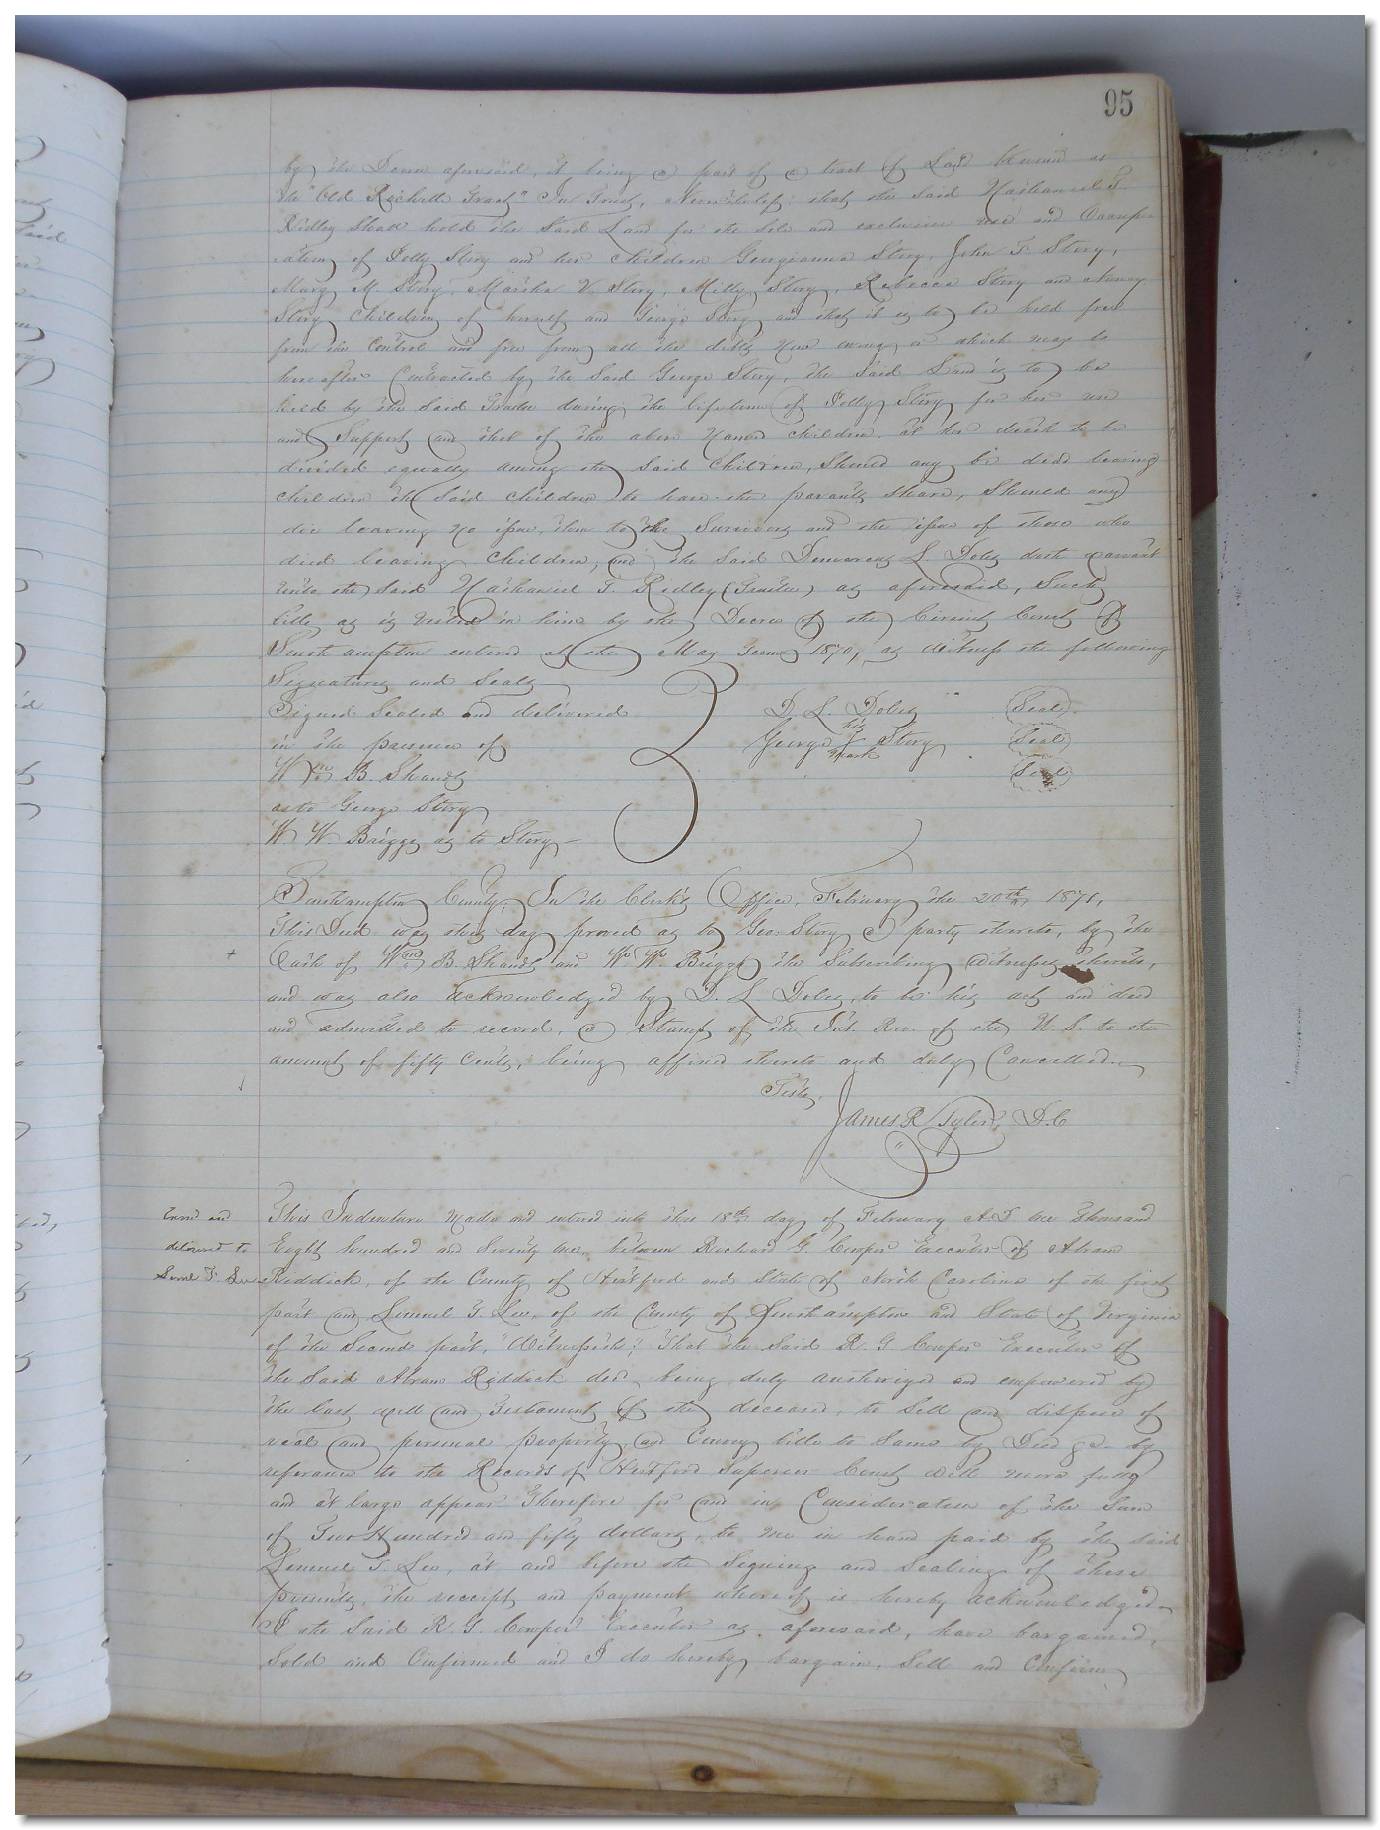 95
by the Decree aforesaid, it being a part of a tract of Land known as
the "Old Ricketts Tract" In Trust, Nevertheless; that the said Nathaniel T.
Ridley Shall hold the Said Land for the sole and exclusive use and Occupa
ation of Polly Story and her children Georgianna Story, John T. Story,
Mary M. Story, Martha V. Story, Milly Story, Rebecca Story and Nancy
Story Children of herself and George Story and that it is to be held free
from the Control and free from all the debts now owing or which may be
hereafter Contracted by the Said George Story, the Said Land is to be
held by the Said Trustee during the lifetime of Polly Story for her use
and Support and that of the above Named children, at her death to be
divided equally among the Said Children, Should any be dead leaving
children the Said children to have the parents share, Should any
die leaving no issue, then to the Survivors and the issue of those who
died leaving Children, and the said L. Doles doth warrant
unto the Said Nathaniel T. Ridley (Trustee) as aforesaid, Such
title as is Vested in him by the Decree of the Circuit Court of
Southampton entered at the May Term 1870, as witness the following
Signatures and Seals
Signed Sealed and delivered D. L. Doles (Seal)
in the presence of George his mark Story (Seal)
Wm B. Shands (Seal)
as to George Story
W. W. Briggs as to Story
Southampton County: In the Clerk's Office, February the 20th, 1871,
This Deed was this day proved as to Geo. Story a party thereto, by the
Oath of Wm B. Shands and W. W. Briggs the Subscribing witnesses thereto,
and was also acknowledged by D. L. Doles, to be his act and deed
and admitted to record, a Stamp of the Int. Rev. of the U. S. to the
amount of fifty Cents, being affixed thereto and duly Cancelled.
Teste,
James R Tyler, D.C
and
delivered to
Leml T. Lee
This Indenture Made and entered into this 18th day of February A.D. One Thousand
Eight hundred and Seventy One, between Richard G. Cowper Executor of Abram
Riddick, of the County of Hertford and State of North Carolina of the first
part and Lemuel T. Lee, of the County of Southampton and State of Virginia
of the Second part, Witnesseth; That the Said R. G. Cowper Executor of
the Said Abram Riddick decd, being duly authorized and empowered by
the last will and Testament of the deceased, to Sell and dispose of
real and personal property and Convey title to Same by Deed &c. by
reference to the Records of Hertford Superior Court will more fully
and at large appear Therefore for and in Consideration of the Sum
of Two Hundred and fifty dollars, to me in hand paid by the said
Lemuel T. Lee, at and before the Signing and Sealing of these
presents, the receipt and payment whereof is hereby acknowledged
I the Said R. G. Cowper Executor as aforesaid, have bargained,
Sold and Confirmed and I do hereby bargain, Sell and Confirm